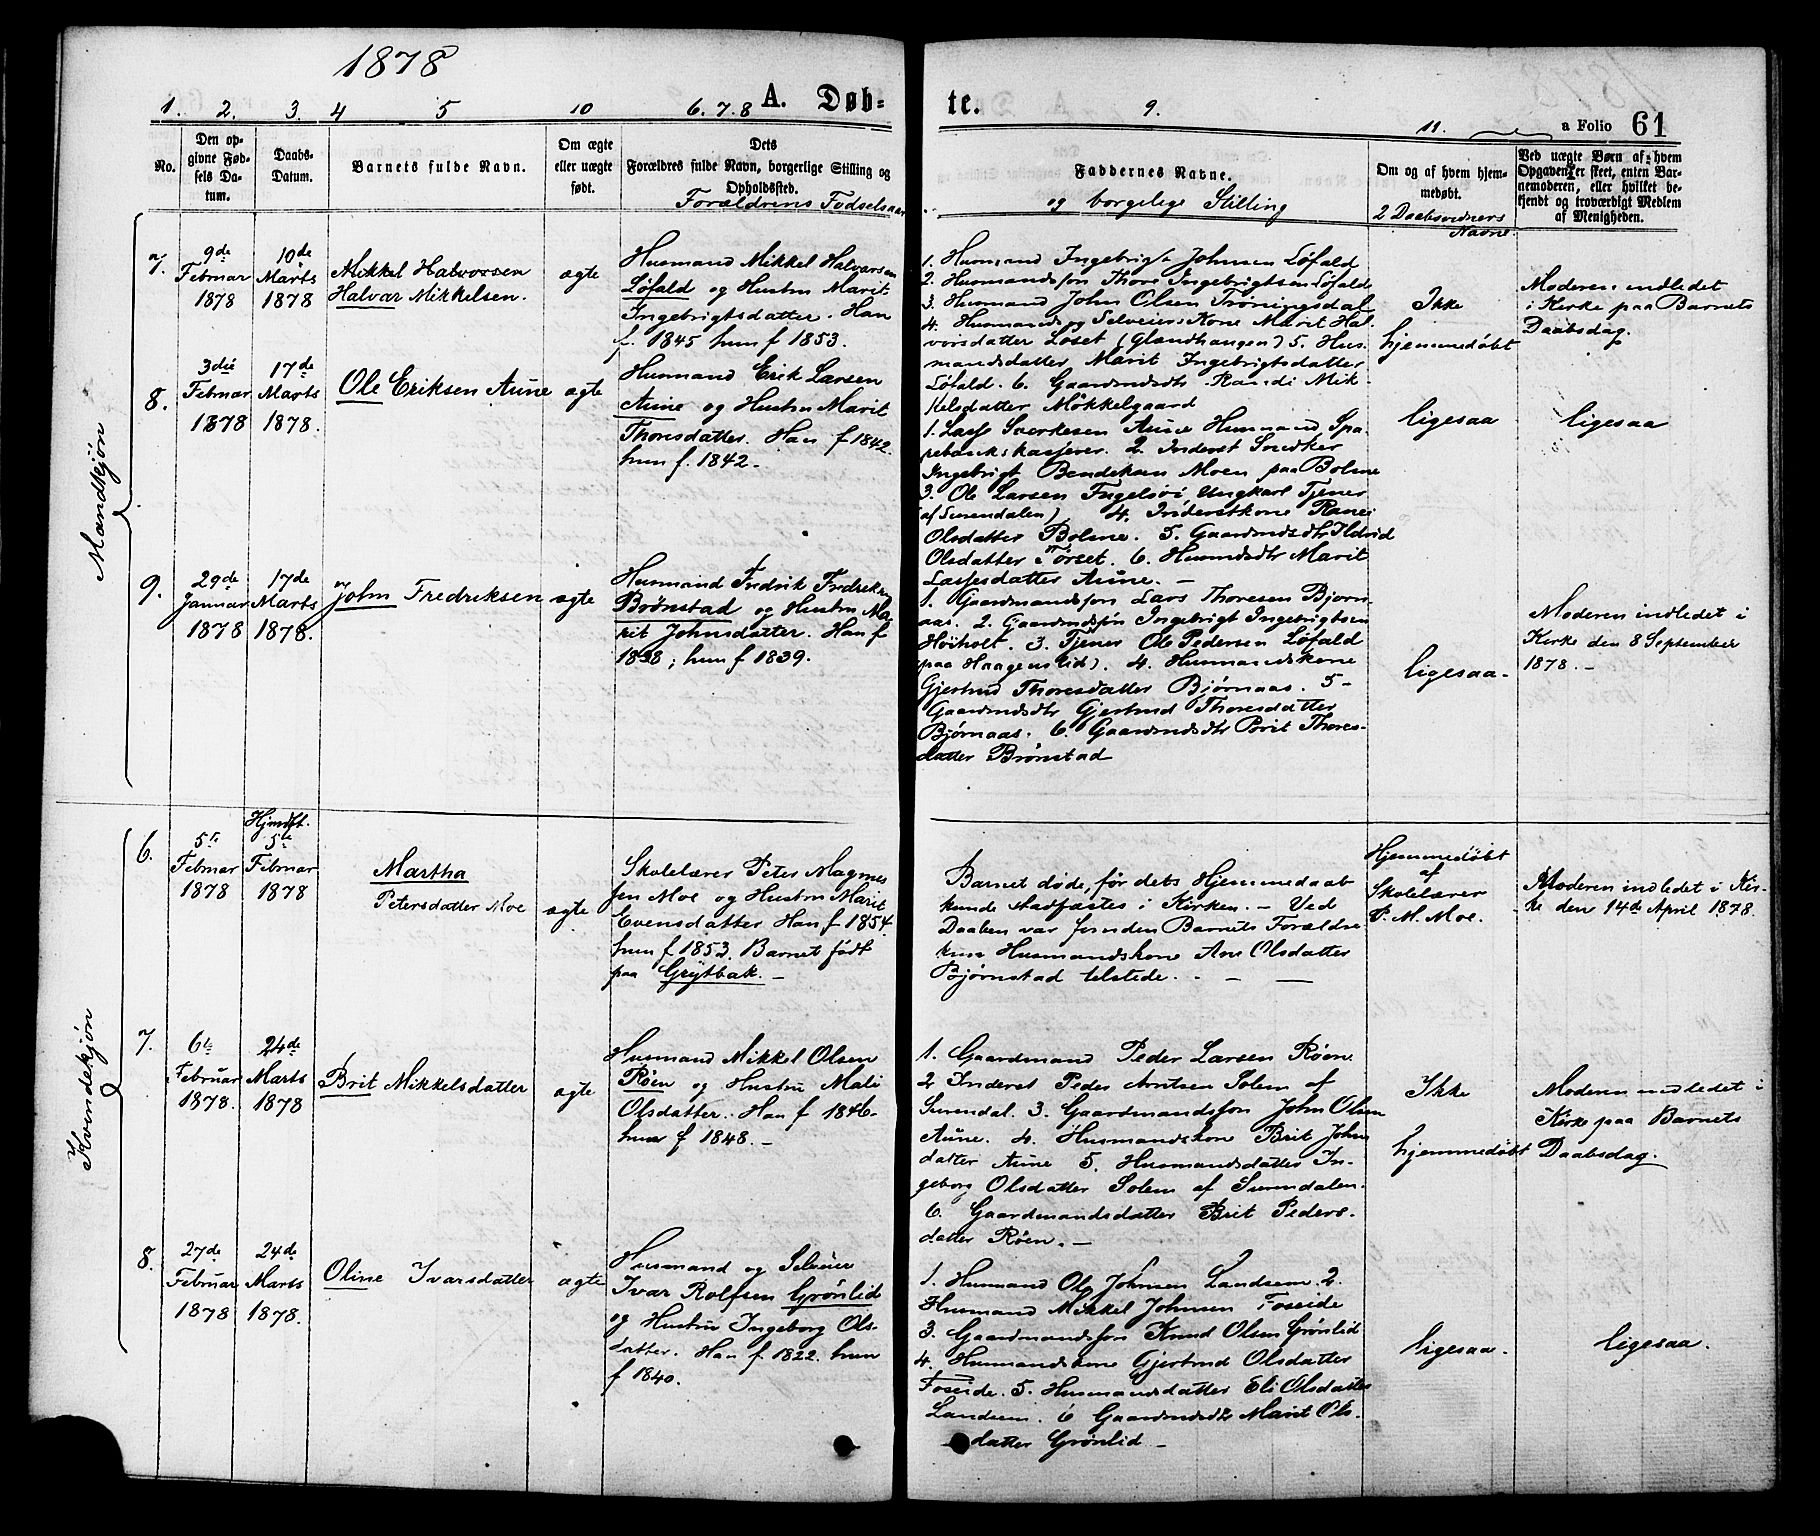 1878
1. 2. 3. 4 5 10 6. 7. 8 A. Døb-
te. 9. 11. a Folio 61
No.
Den op-
givne Fød-
sels Da-
tum.
Daabs-
Datum.
Barnets fulde Navn.
Om ægte
eller uægte
født.
Dets
Forældres fulde Navn, borgerlige Stilling og
Opholdssted.
Forældrens Fødselsaar
Faddernes Navne.
og borgelige Stilling
Om og af hvem hjem-
medøbt.
2 Daabsvidners
Navne.
Ved uægte Børn af hvem
Opgaven er skeet, enten Bar-
nemoderen, eller hvilket be-
kjendt og troværdigt Medlem
af Menigheden.
Mandkjøn
7.
9de
Februar
1878
10de
Marts
1878
Mikkel Halvorsen
Halvar Mikkelsen.
ægte
Husmand Mikkel Halvarsen
Løfald og Hustru Marit
Ingebrigtsdatter. Han
f. 1845 hun f 1853.
1. Husmand Ingebrigt Johnsen Løfald
2. Husmandssøn Thore Ingebrigtsen Løfald
3. Husmand John Olsen Trøningsdal
4. Husmands og Selveiers Kone Marit Hal-
vorsdatter Løset (Glandhaugen) 5. Hus-
mandsdatter Marit Ingebrigtsdatter
Løfald. 6. Gaardmdsdtr Randi Mik-
kelsdatter Møkkelgaard
Ikke
hjemmedøbt
Moderen indledet
i Kirke paa Barnets
Daabsdag.
8.
3die
Februar
1878
17de
Marts
1878.
Ole Eriksen Aune
ægte
Husmand Erik Larsen
Aune og Hustru Marit
Thoresdatter. Han f 1842.
hun f. 1842.
1. Lars Sverkesen Aune Husmand Spa-
rebankskasserer. 2. Inderst Snedker
Ingebrigt Bendiksen Moen paa Bolme
3. Ole Larsen Ungkarl Tjener
(af Surendalen) 4. Inderstkone Ranei
Olsdatter Bolme. 5. Gaardmdsdtr Ildrid
Olsdatter Tørset. 6. Husmdsdtr Marit
Larsesdatter Aune. –
ligesaa
ligesaa
9.
29de
Januar
1878
17de
Marts
1878.
John Fredriksen
ægte
Husmand Fredrik Fredriksen
Brønstad og Hustru Ma-
rit Johnsdatter. Han f
1838; hun f 1839.
1. Gaardmandssøn Lars Thoresen Bjørn-
aas. 2. Gaardmdssøn Ingebrigt Ingebrigtsen
Høiholt. 3. Tjener Ole Pedersen Løfald
(paa Haagenslid). 4. Husmandskone
Gjertrud Thoresdatter Bjørnaas. 5-
Gaardmdsdtr Gjertrud Thoresdatter
Bjørnaas. 6. Gaardmdsdtr Brit Thores-
datter Brønstad
ligesaa.
Moderen indledet i
Kirke den 8 September
1878. –
Kvindekjøn
6.
5te
Februar
1878
Hjmdøbt.
5te
Februar
1878
Martha
Petersdatter Moe
ægte
Skolelærer Peter Magnes
sen Moe og Hustru Marit
Evensdatter Han f 1854.
hun f 1853. Barnet født
paa Grytbak. –
Barnet døde, før dets Hjemmedaab
kunde stadfæstes i Kirken. – Ved
Daaben var foruden Barnets Forældre
kun Husmandskone Ane Olsdatter
Bjørnstad tilstede. - - –
Hjemmedøbt
af
Skolelærer
P. M. Moe.
Moderen indledet i Kir-
ke den 14de April 1878.
7.
6te
Februar
1878.
24de
Marts
1878
Brit Mikkelsdatter
ægte
Husmand Mikkel Olsen
Røen og Hustru Mali
Olsdatter. Han f 1846-
hun f 1848. –
1. Gaardmand Peder Larsen Røen
2 Inderst Peder Arntsen Solem af
Surendal. 3. Gaardmandssøn John Olsen
Aune. 4. Husmandskone Brit Johns
datter Aune 5. Husmandsdatter In-
geborg Olsdatter Solem af Surendalen.
6. Gaardmandsdatter Brit Peders-
datter Røen. –
Ikke
hjemmedøbt
Moderen indledet i
Kirke paa Barnets
Daabsdag.
8.
27de
Februar
1878
24de
Marts
1878.
Oline Ivarsdatter
ægte
Husmand og Selveier
Ivar Rolfsen Grønlid
og Hustru Ingeborg Ols-
datter. Han f. 1822. hun
f 1840.
1. Husmand Ole Johnsen Landsem. 2.
Husmand Mikkel Johnsen Foseide
3. Gaardmandssøn Knud Olsen Grønlid
4. Husmandskone Gjertrud Olsdatter
Foseide. 5. Husmandsdatter Eli Olsdatter
Landsem. 6 Gaardmdsdtr Marit Ols-
datter Grønlid –
ligesaa.
ligesaa.